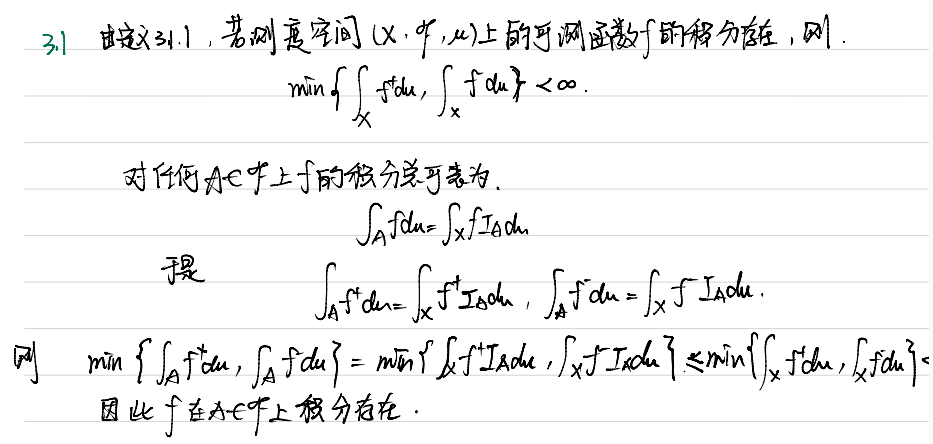 3.1 由定义3.1.1，若测度空间(X, 𝓕, μ)上的可测函数f的积分存在，则.
min{∫_X f⁺dμ, ∫_X f⁻dμ} < ∞.
对任何A∈𝓕上f的积分总可表为.
∫_A fdμ = ∫_X f I_A dμ
于是
∫_A f⁺dμ = ∫_X f⁺ I_A dμ, ∫_A f⁻dμ = ∫_X f⁻ I_A dμ.
则 min{∫_A f⁺dμ, ∫_A f⁻dμ} = min{∫_X f⁺ I_A dμ, ∫_X f⁻ I_A dμ} ≤ min{∫_X f⁺dμ, ∫_X f⁻dμ} <
因此 f 在A∈𝓕上积分存在.